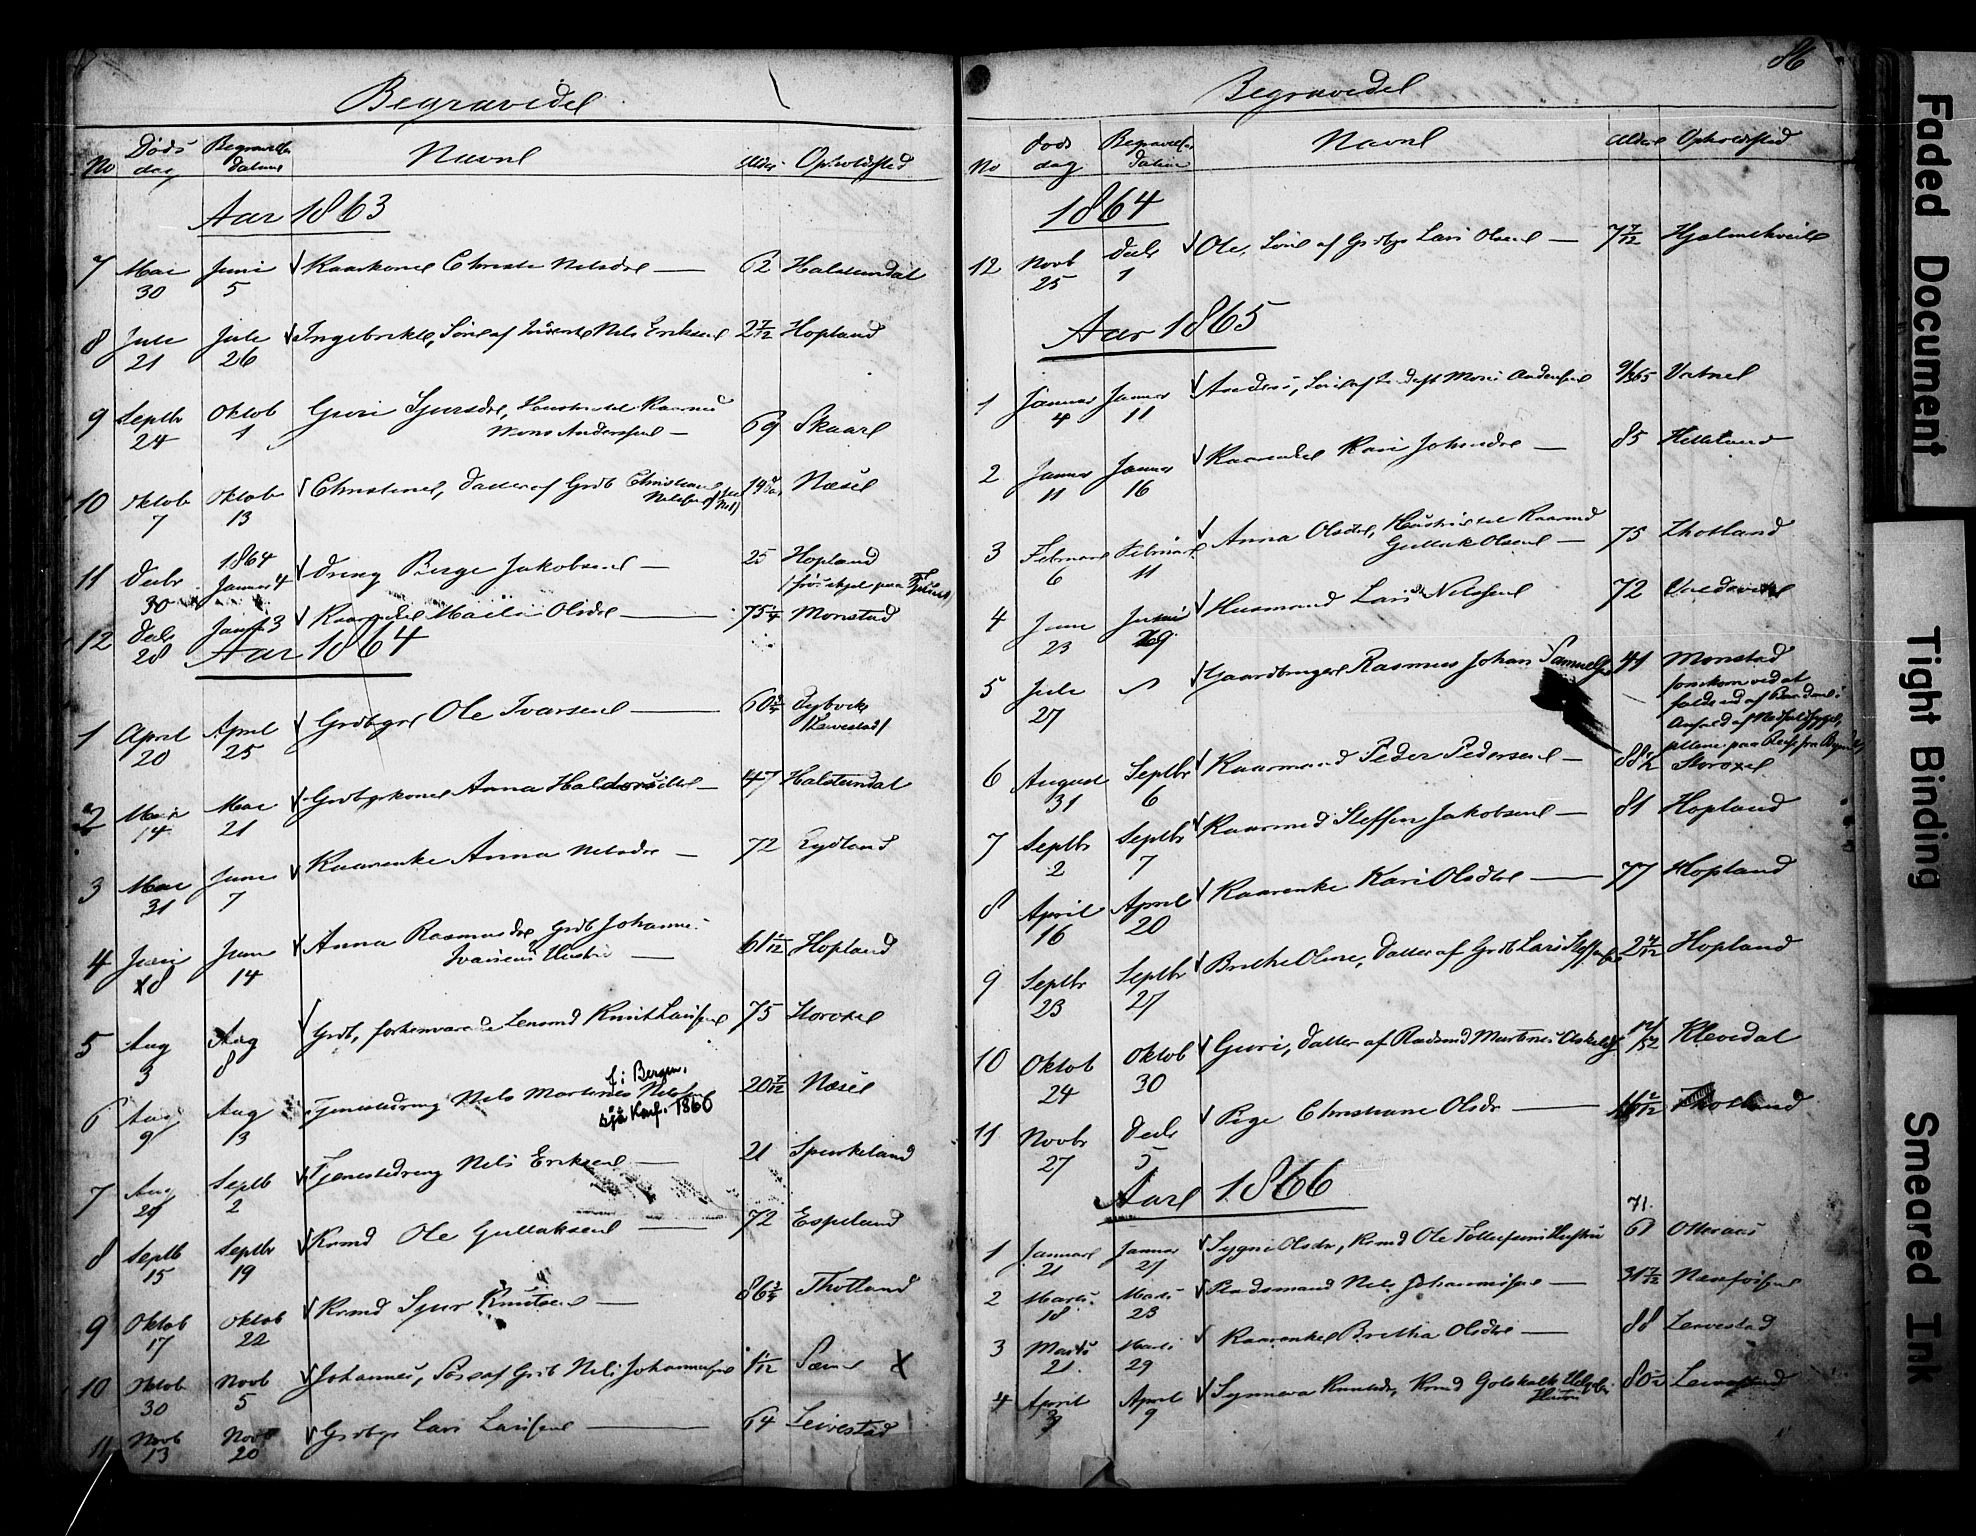 Begravede
No Døds dag Begravelses datum Navne Alder Opholdssted
Aar 1863
7 Mai 30 Juni 5 Kaarkone Christi Nelsdr — 62 Halstendal
8 Juli 21 Juli 26 Ingebrikt, Søn af Nels Eriksen 2 7/12 Hopland
9 Septbr 24 Oktob 1 Guri Sjursdr, Hustru til Kaarmd
Mons Andersen — 69 Skaar
10 Oktob 7 Oktob 13 Christine, Datter af Grdb Christian
Nelsen 19 Næse
11 Decbr 30 1864 Januar 4 Dreng Berge Jakobsen — 25 Hopland
12 Decb 28 Jan 3 Kaarenke Marta Olsdr — 75 1/4 Monstad
Aar 1864
1 April 20 April 25 Grdbgr Ole Ivarsen — 60 3/4 Eybvik
/Leivestad/
2 Mai 14 Mai 21 Grdbgrkone Anna Haldorsdtr — 47 Halstendal
3 Mai 31 Juni 7 Kaarenke Anna Nelsdr — 72 Eydland
4 Juni 8 Juni 14 Anna Rasmusdr, Grdb Johannes
Ivarsens Hustru — 61 Hopland
5 Aug 3 Aug 8 Grdb, forhenværende Lensmd Knut Larsen 75 Storoxe
f. i Bergen.
6 Aug 9 Aug 13 Tjenestedreng Nels Martines Nelsen 20 7/12 Næse
sjå Konf. 1860
7 Aug 29 Septb 2 Tjenestedreng Nels Eriksen — 21 Spurkeland
8 Septb 15 Septbr 19 Krmd Ole Gullaksen — 72 Espeland
9 Oktob 17 Oktob 22 Krmd Sjur Knutsen — 86 3/4 Thotland
10 Oktob 30 Novb 5 Johannes, Søn af Grdb Nels Johannessen 1/12 Sæm X
11 Novb 13 Novb 20 Grdbgr Lars Larssen — 64 Leivestad
86
Begravede
No Døds dag Begravelses datum Navne Alder Opholdssted
1864
12 Novb 25 Decb 1 Ole, Søn af Grdbgr Lars Olsen — 7 7/12 Hjelmtveit
Aar 1865
1 Januar 4 Januar 11 Anders, Søn af Mons Andersen 9/365 Vatne
2 Januar 11 Januar 16 Kaarenke Kari Johnsdr — 85 Helleland
3 Februar 6 Februar 11 Anna Olsdr, Hustru til Kaarmd
Gullak Olsen — 75 Thotland
4 Juni 23 Juni 29 Husmand Lars Nelssen 72
5 Juli 27 Gaardbruger Rasmus Johan Samuels 41 Monstad
6 August 31 Septbr 6 Kaarmand Peder Pedersen — 88 1/2 Storoxe
7 Septbr 2 Septbr 7 Kaarmd Steffen Jakobsen — 81 Hopland
8 April 16 April 20 Kaarenke Kari Olsdtr — 77 Hopland
9 Septbr 23 Septbr 27 Brithe Oline, Datter af Grdb Lars Steffensen 2 Hopland
10 Oktob 24 Oktob 30 Guri, Datter af Radsmd Martines 12/52 Klevdal
11 Novbr 27 Decb 5 Pige Christiane Olsdr — Thotland
Aar 1866
71.
1 Januar 21 Januar 27 Sygni Olsdr, Krmd Ole Tollefsens Hustru 61 Otteraas
2 Marts 18 Marts 23 Radsmand Nels Johannessen — 31 7/12
3 Marts 21 Marts 29 Kaarenke Britha Olsdtr — 88 Leivestad
4 April 3 April 9 Synneva Knutsdr, Krmd Gotskalk
Hustru 80 Leivestad
Faded Document
Tight Binding
Smeared Ink